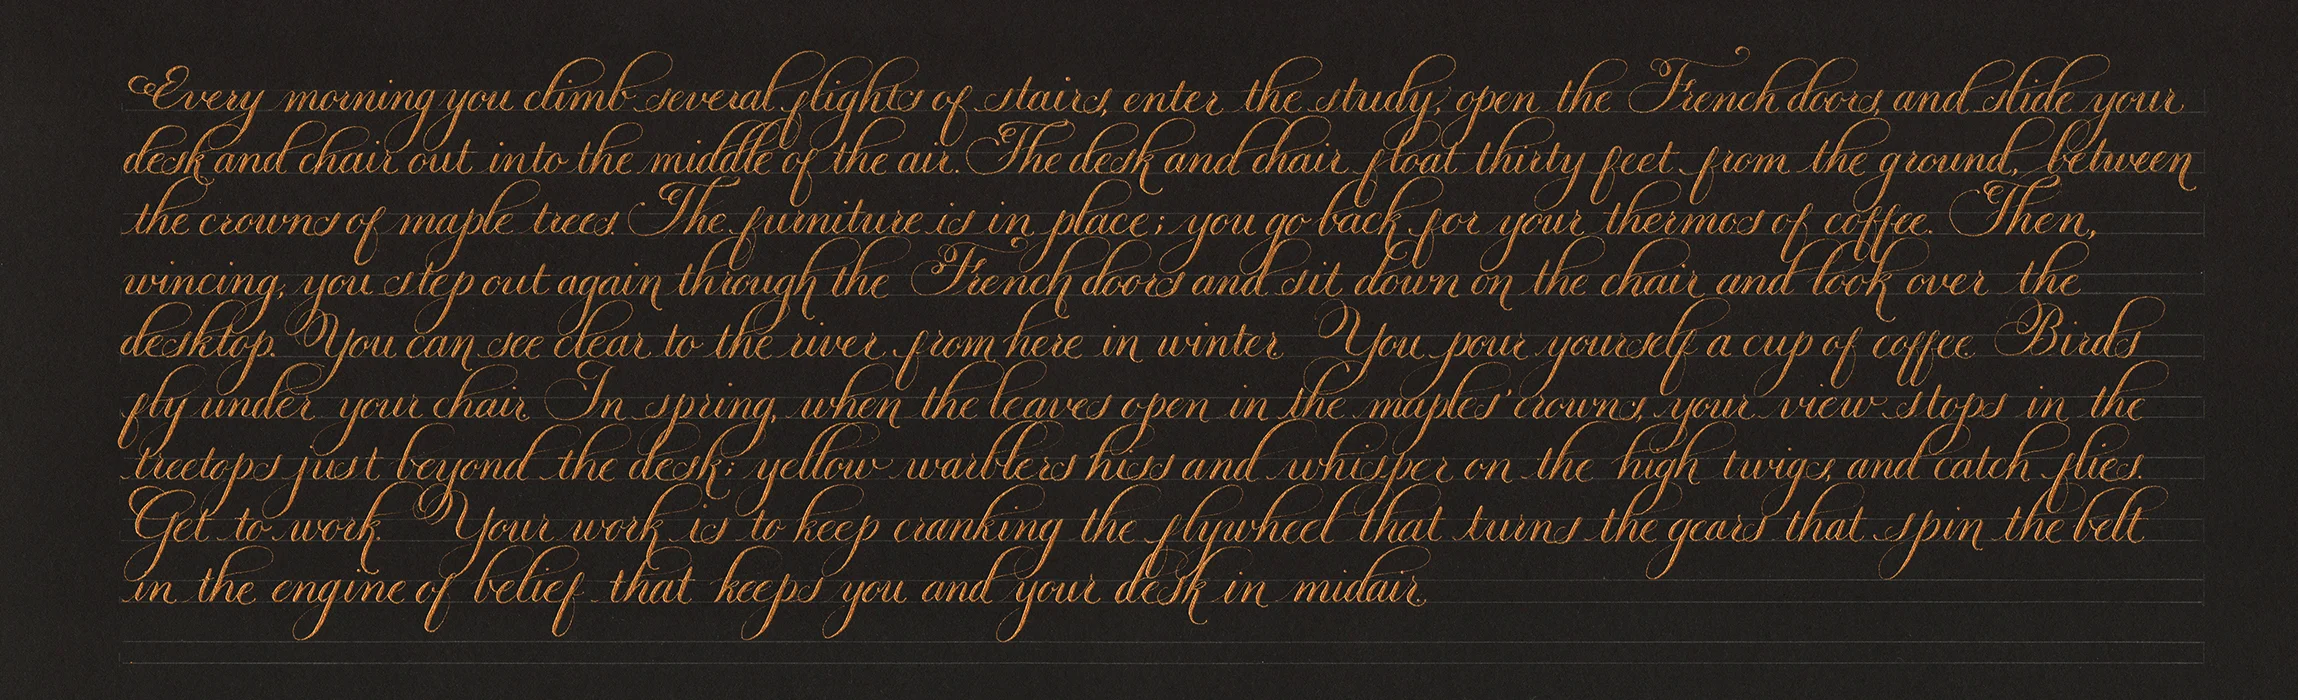 Every morning you climb several flights of stairs, enter the study, open the French doors, and slide your
desk and chair out into the middle of the air. The desk and chair float thirty feet from the ground, between
the crowns of maple trees. The furniture is in place; you go back for your thermos of coffee. Then,
wincing, you step out again through the French doors and sit down on the chair and look over the
desktop. You can see clear to the river from here in winter. You pour yourself a cup of coffee. Birds
fly under your chair. In spring, when the leaves open in the maples' crowns, your view stops in the
treetops just beyond the desk; yellow warblers hiss and whisper on the high twigs, and catch flies.
Get to work. Your work is to keep cranking the flywheel that turns the gears that spin the belt
in the engine of belief that keeps you and your desk in midair.